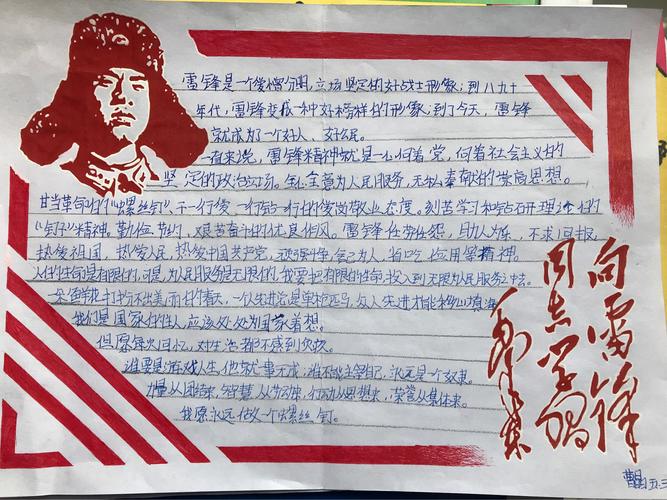 雷锋是一个爱憎分明,立场坚定的好战士形象;到八九十
年代,雷锋变成一种好榜样的形象;到了今天,雷锋
就成为了一个好人、好公民。
一直来说,雷锋精神就是一心向着党,向着社会主义的
坚定的政治立场。全心全意为人民服务,无私奉献的崇高思想。
甘当革命的"螺丝钉",干一行爱一行,钻一行的爱岗敬业态度。刻苦学习和钻研理论的
"钉子"精神,勤俭节约,艰苦奋斗的优良作风。雷锋任劳任怨,助人为乐,不求回报,
热爱祖国,热爱人民,热爱中国共产党,
人的生命是有限的,可是,为人民服务是无限的,我要把有限的生命,投入到无限为人民服务之中去。
一朵鲜花打扮不出美丽的春天,一个人先进总是单枪匹马,众人先进才能移山填海
我们是国家的主人,应该处处为国家着想。
但愿每次回忆,对生活都不感到负疚。
谁要是游戏人生,他就一事无成;谁不能主宰自己,永远是一个奴隶。
力量从团结来,智慧从劳动来,行动从思想来,荣誉从集体来。
我愿永远做一个螺丝钉。
向雷锋
同志学习
毛泽东